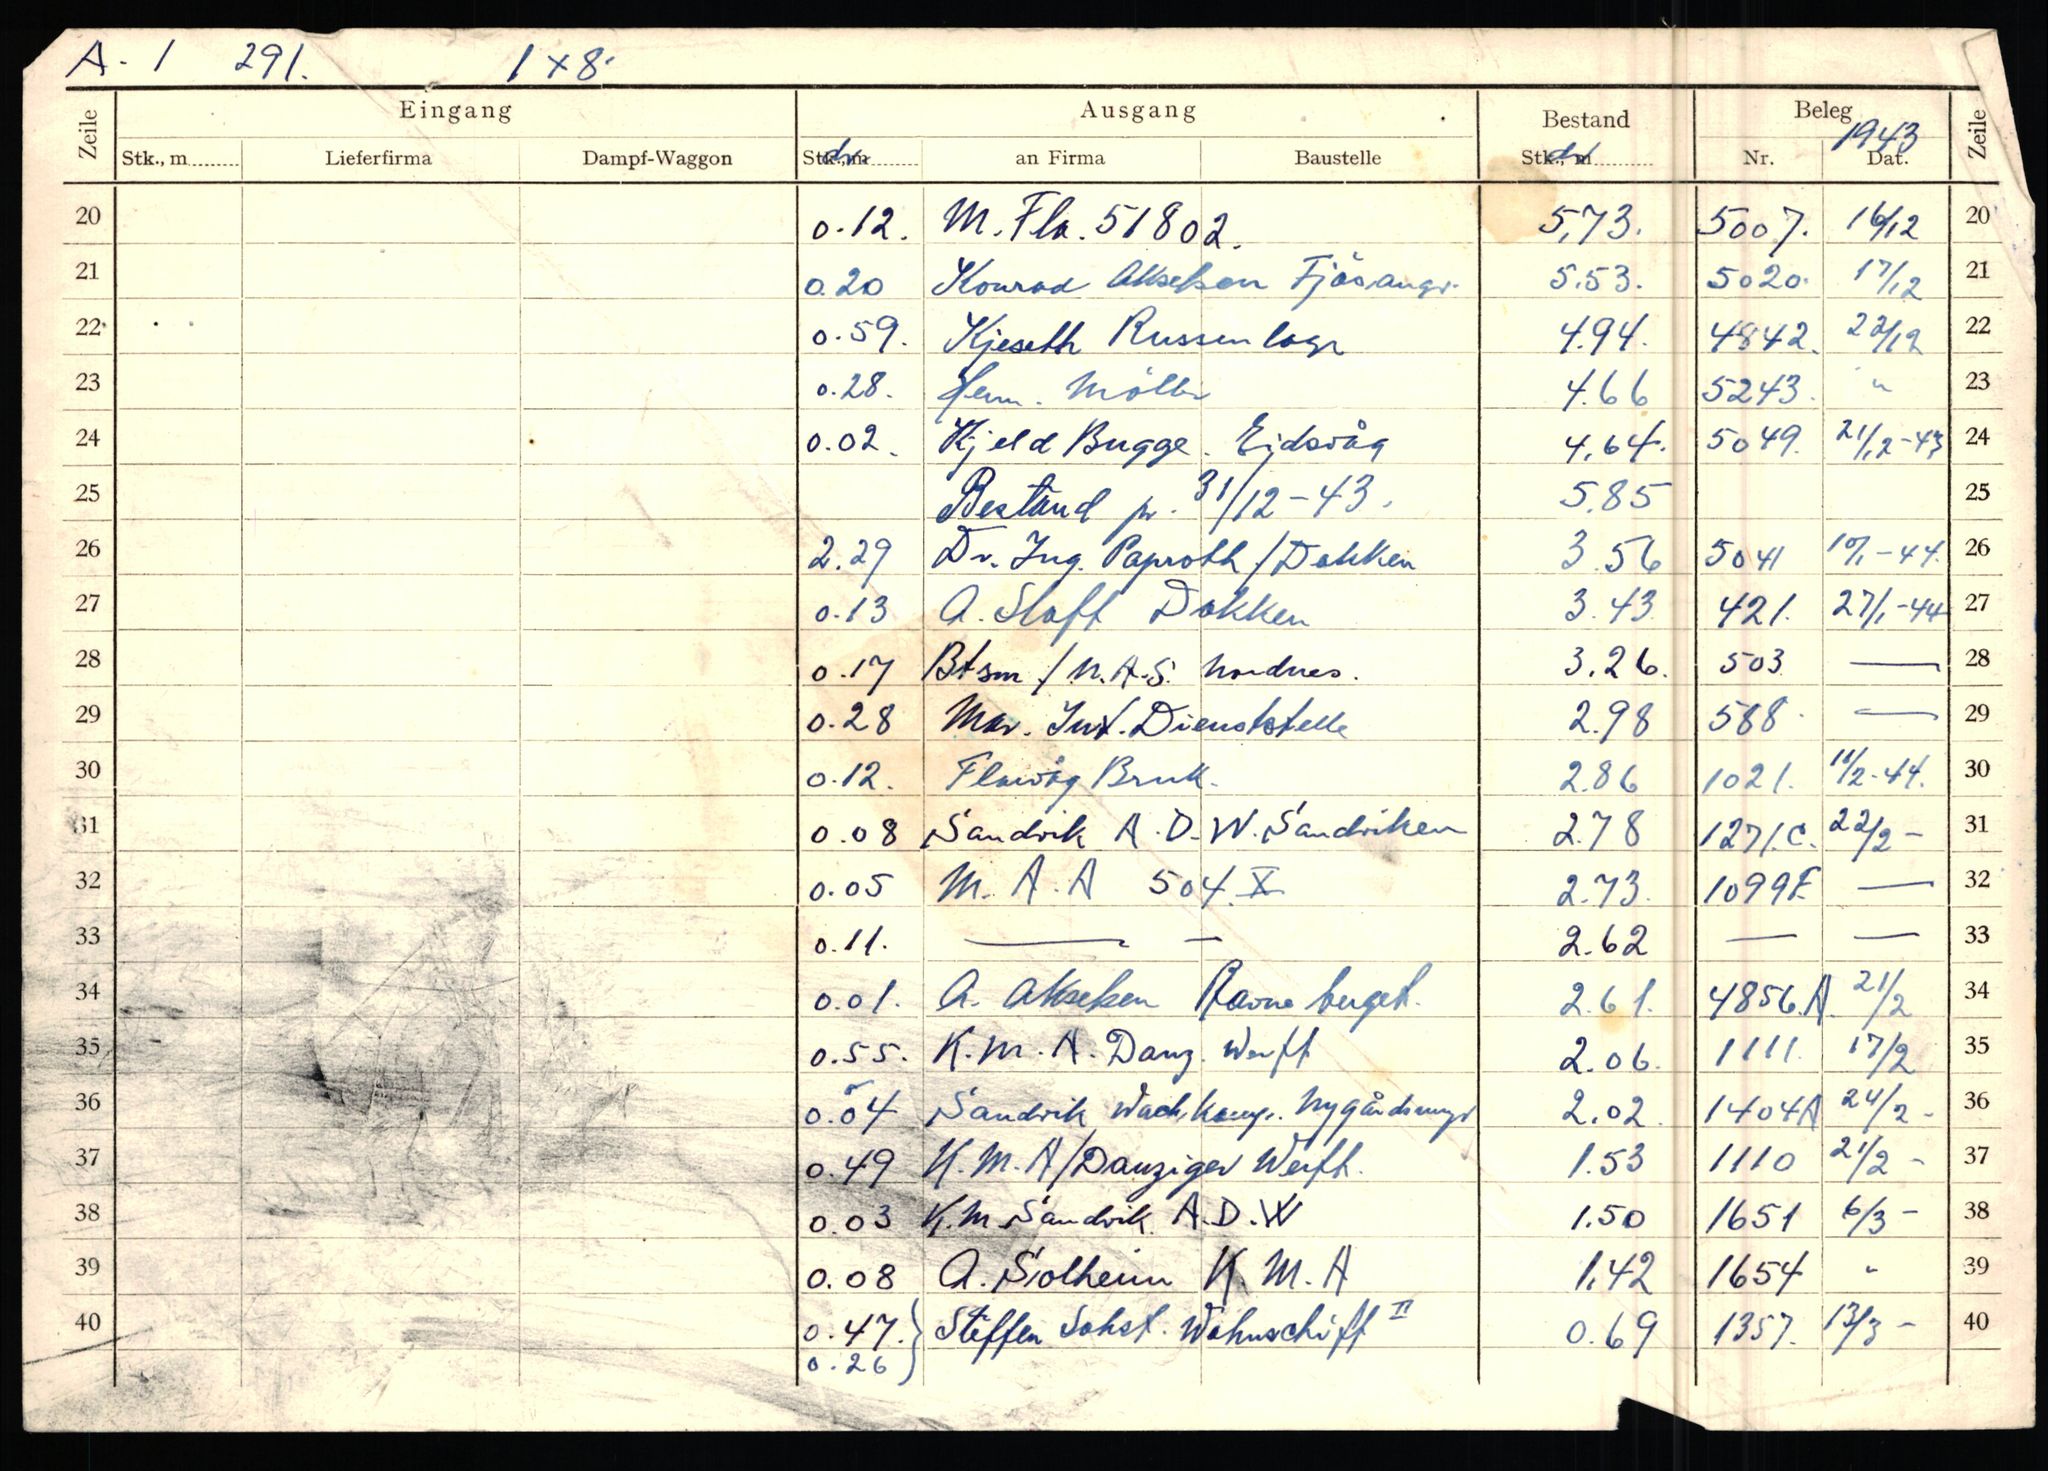 A. 1 291. 1 x 8.
Zeile Eingang Ausgang Bestand Beleg 1943 Zeile
Stk., m Lieferfirma Dampf-Waggon Stk., m an Firma Baustelle Stk., m Nr. Dat.
20 0.12. M. Fla. 51802. 5,73. 5007. 16/12 20
21 0.20 Konrad Akselsen Fjösanger. 5.53. 5020. 17/12 21
22 0.59. Kjeseth Russenlager 4.94. 4842. 22/12 22
23 0.28. Herm. Möller 4.66 5243. " 23
24 0.02. Kjeld Bugge. Eidsvåg 4,64. 5049. 21/12-43 24
25 Bestand pr. 31/12-43. 5.85 25
26 2.29 Dr. Ing. Paproth / Dokken 3.56 5041 10/1-44. 26
27 0.13 A. Sloft Dokken 3.43. 421. 27/1-44 27
28 0.17 Btsm / N.A.S. Nordnes. 3.26. 503 — 28
29 0.28 Mar. Int. Dienststelle 2.98 588. — 29
30 0.12. Flavåg Bruk. 2.86 1021. 11/2-44. 30
31 0.08 Sandvik A.D.W. Sandviken 2.78 1271.C. 22/2 - 31
32 0.05 M.A.A 504.X 2.73. 1099F. — 32
33 0.11. — — 2.62 — — 33
34 0.01. A. Akselsen Ravneberget. 2.61. 4856.A. 21/2 34
35 0.55. K.M.A. Danz. Werft 2.06. 1111. 17/2 35
36 0.04 Sandvik Wach.komp. Nygårdsmyr 2.02. 1404A 24/2 - 36
37 0.49 K.M.A/Danziger Werft. 1.53 1110 21/2 - 37
38 0.03 K.M. Sandvik A.D.W 1.50 1651 6/3 - 38
39 0.08 A. Solheim K.M.A 1.42 1654 " 39
40 0.47. } Steffen Sohst. Wohnschiff II 0.69 1357. 13/3 - 40
0.26